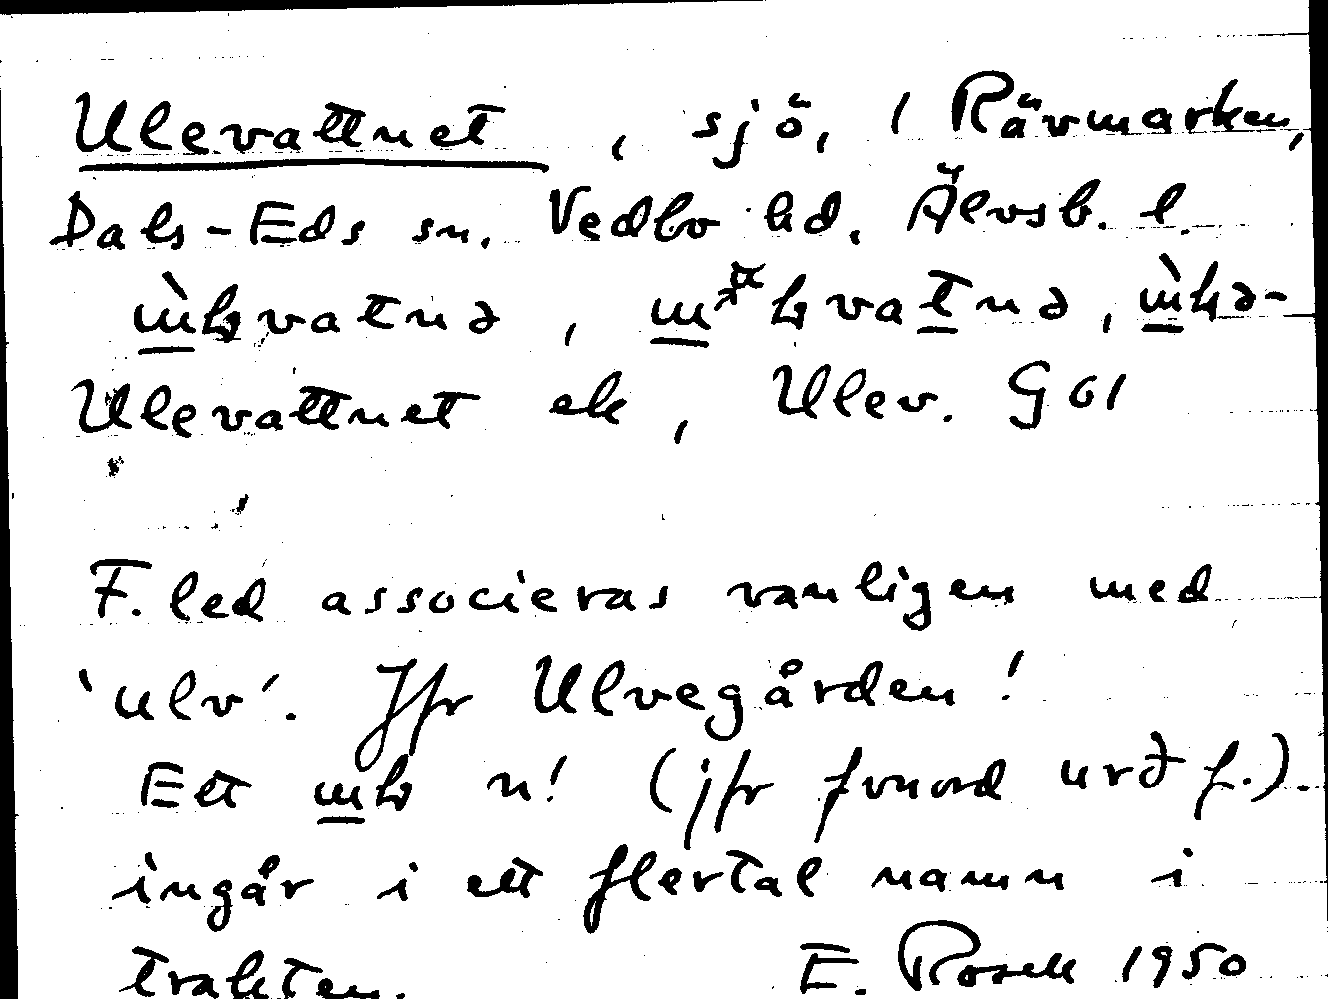 Ulevattnet, sjö, i Rävmarken,
Dals-Eds sn. Vedbo hd. Älvsb. l.
vatnə, vatnə,
Ulevattnet ek, Ulev. G 61
F. led associeras vanligen med
'ulv'. Jfr Ulvegården!
Ett n! (jfr fvnord urð f.).
ingår i ett flertal namn i
trakten. E. Rosell 1950